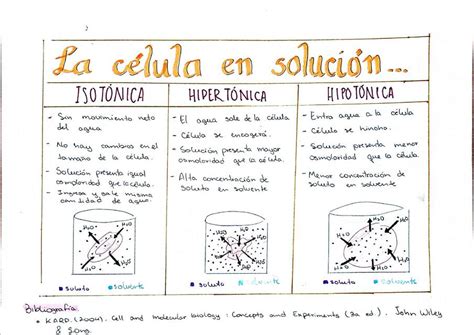 La célula en solución...
ISOTÓNICA
- Sin movimiento neto
del agua
- No hay cambios en el
tamaño de la célula.
- Solución presenta igual
osmolaridad que la célula.
- Ingresa y sale misma
cantidad de agua.
H2O
H2O
H2O
H2O
soluto
solvente
HIPERTÓNICA
- El agua sale de la célula
- Célula se encogerá.
- Solución presenta mayor
osmolaridad que la célula.
- Alta concentración de
soluto en solvente
H2O
H2O
H2O
H2O
soluto
solvente
HIPOTÓNICA
- Entra agua a la célula
- Célula se hincha.
- Solución presenta menor
osmolaridad que la célula.
- Menor concentración de
soluto en solvente
H2O
H2O
H2O
H2O
soluto
solvente
Bibliografía:
• KARP. (2004). Cell and molecular biology: Concepts and Experiments (3a ed). John Wiley
& Sons